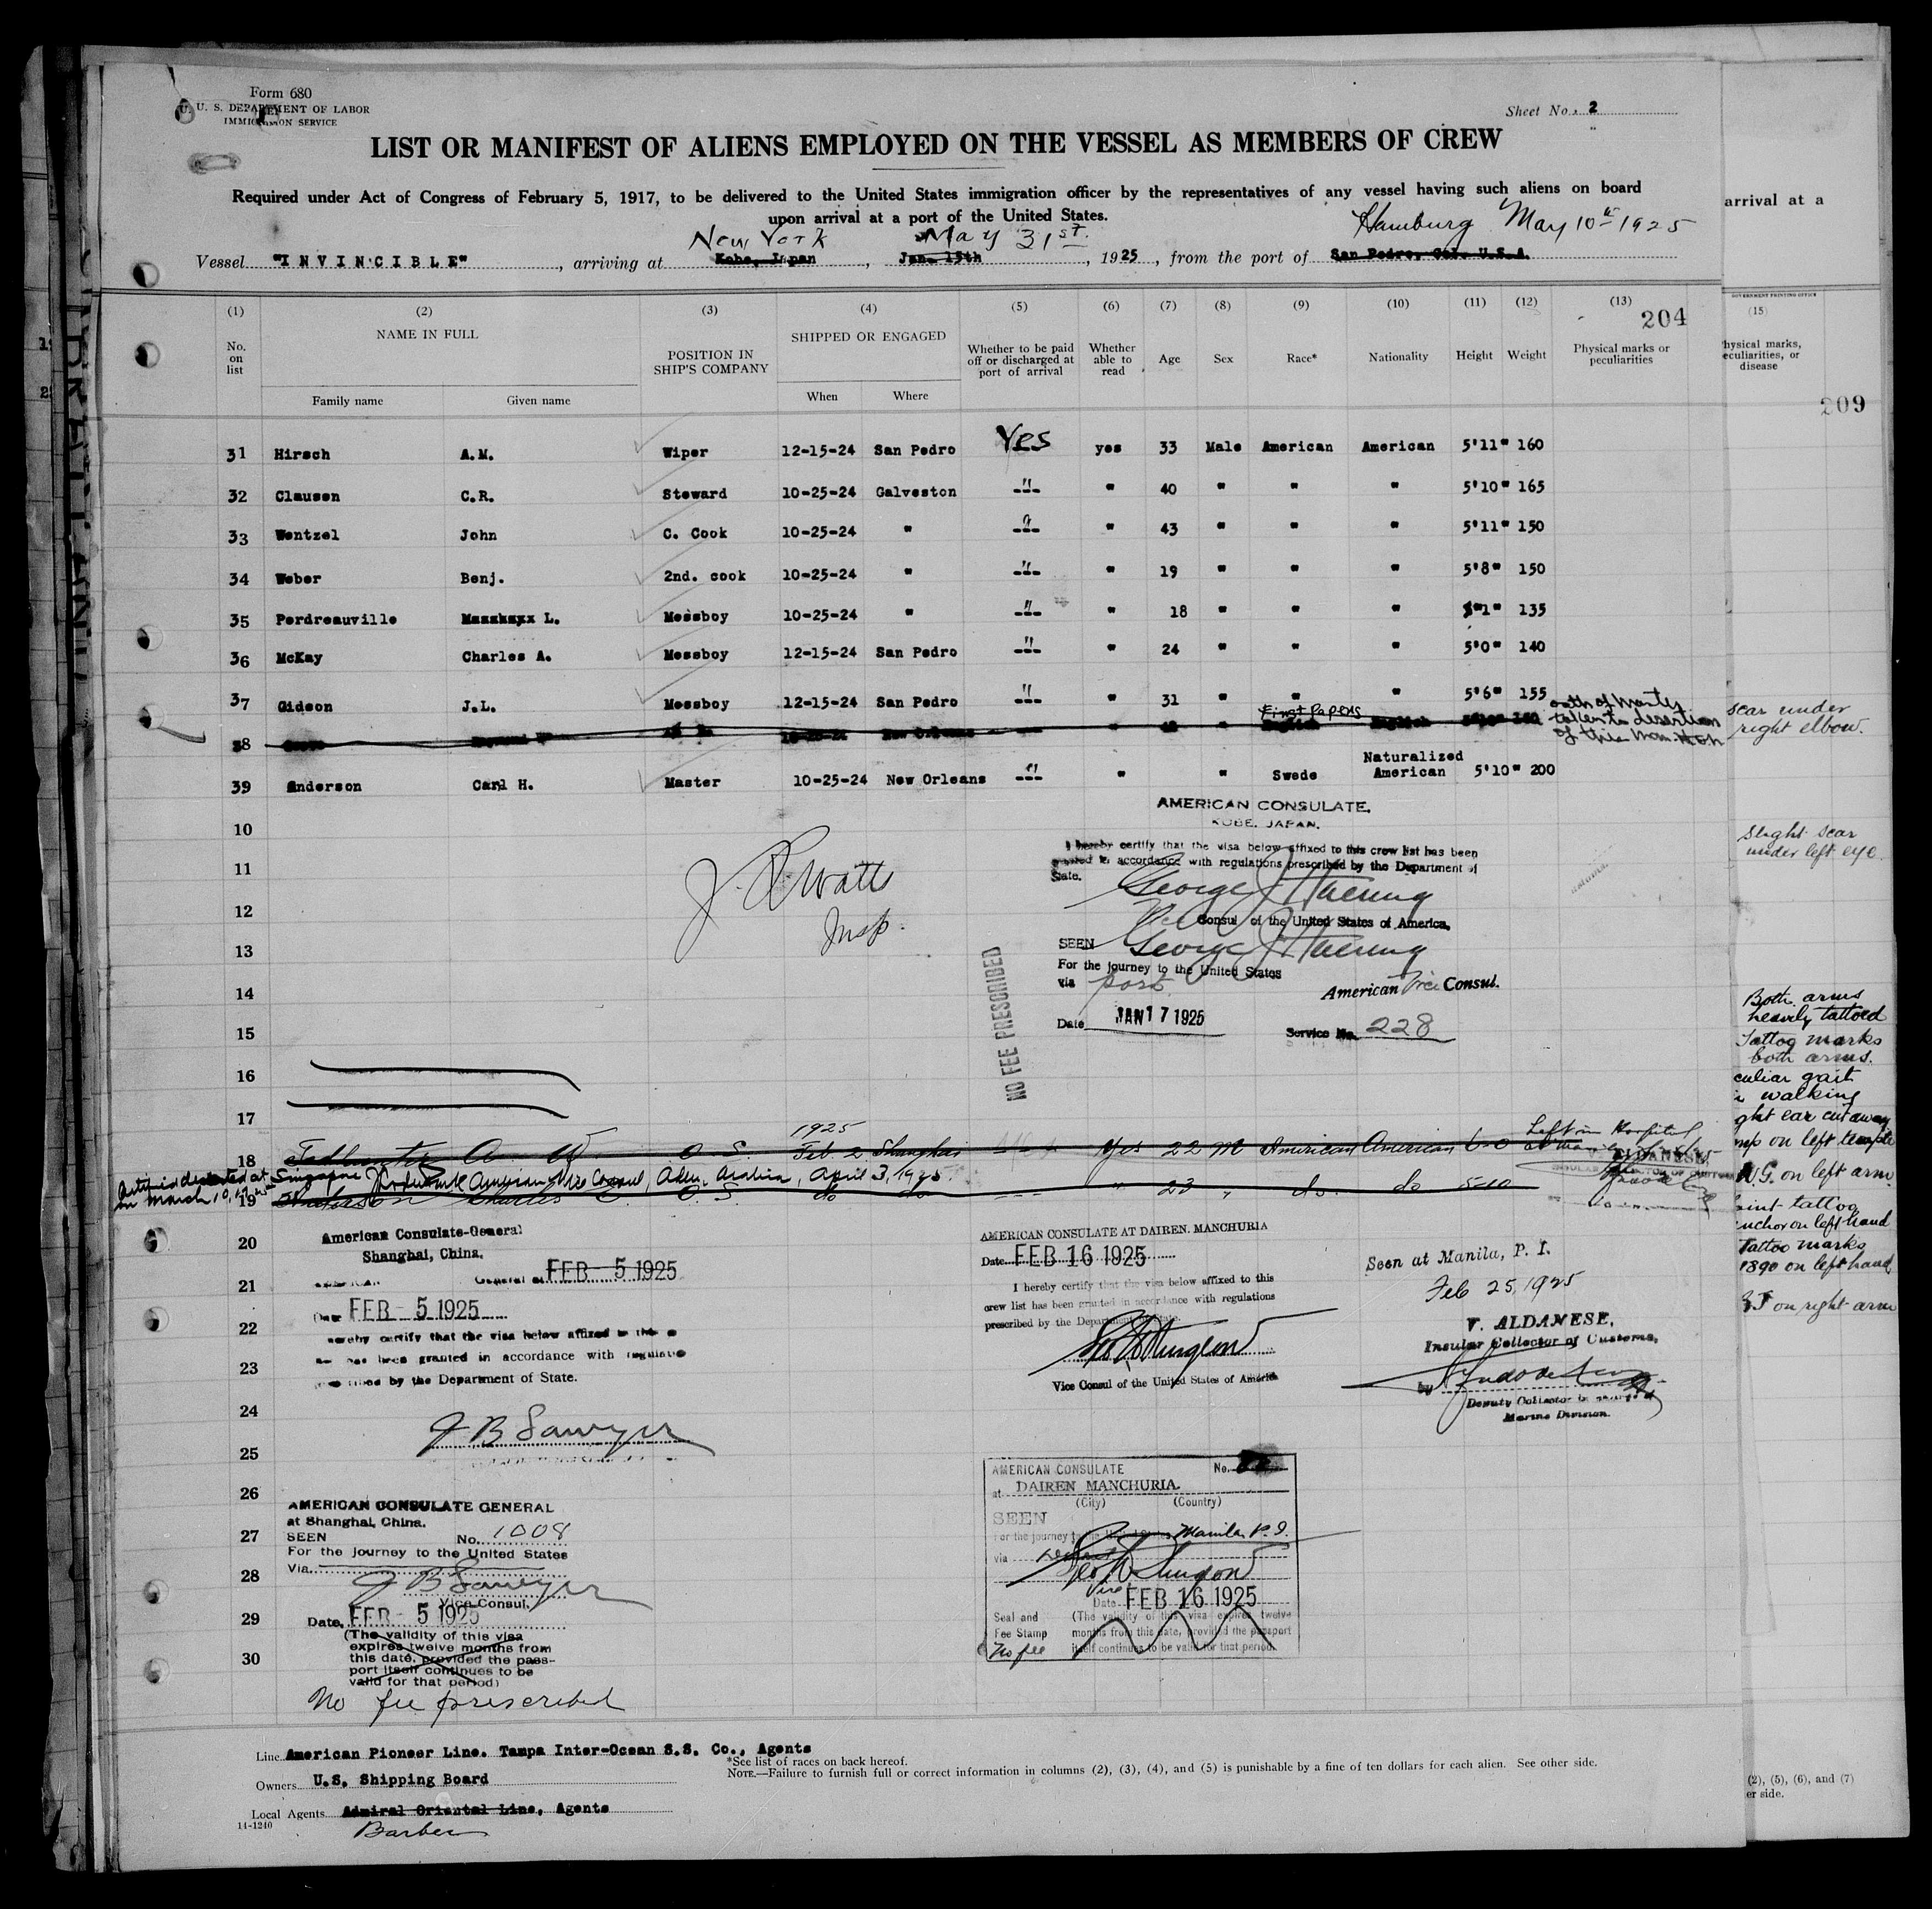 Form 680
U. S. DEPARTMENT OF LABOR
IMMIGRATION SERVICE
Sheet No. 2
LIST OR MANIFEST OF ALIENS EMPLOYED ON THE VESSEL AS MEMBERS OF CREW
Required under Act of Congress of February 5, 1917, to be delivered to the United States immigration officer by the representatives of any vessel having such aliens on board
upon arrival at a port of the United States.
New York May 31st. Hamburg May 10th 1925
Vessel "INVINCIBLE", arriving at Kobe, Japan, Jan. 15th, 1925, from the port of San Pedro, Cal. U.S.A.
(1) (2) (3) (4) (5) (6) (7) (8) (9) (10) (11) (12) (13)
204
No. on list NAME IN FULL POSITION IN SHIP'S COMPANY SHIPPED OR ENGAGED Whether to be paid off or discharged at port of arrival Whether able to read Age Sex Race* Nationality Height Weight Physical marks or peculiarities
Family name Given name When Where
31 Hirsch A.M. Wiper 12-15-24 San Pedro Yes yes 33 Male American American 5'11" 160
32 Clausen C.R. Steward 10-25-24 Galveston " " 40 " " " 5'10" 165
33 Wentzel John C. Cook 10-25-24 " " " 43 " " " 5'11" 150
34 Weber Benj. 2nd. cook 10-25-24 " " " 19 " " " 5'8" 150
35 Perdreauville L. Messboy 10-25-24 " " " 18 " " " 135
36 McKay Charles A. Messboy 12-15-24 San Pedro " " 24 " " " 5'0" 140
37 Gideon J.L. Messboy 12-15-24 San Pedro " " 31 " " " 5'6" 155
First Papers
38 New Orleans " " English English
of this man
39 Anderson Carl H. Master 10-25-24 New Orleans " " " Swede Naturalized American 5'10" 200
10
11
12
13
14
15
16
17
AMERICAN CONSULATE,
KOBE, JAPAN.
I hereby certify that the visa below affixed to this crew list has been
granted in accordance with regulations prescribed by the Department of
State.
Vice Consul of the United States of America.
SEEN
For the journey to the United States
via port
American Vice Consul.
Date JAN 17 1925
Service No. 228
NO FEE PRESCRIBED
J. R. Watts
Insp.
1925
18 A. W. O. S. Feb. 2 Shanghai Yes 22 M American American 6-0 Left in Hospital
deserted at Singapore
on March 10, 1925 American Vice Consul, Aden, Arabia, April 3, 1925.
19 Anderson Charles O. S. do do " 23 " do do 5-10
20
21
22
23
24
25
26
27
28
29
30
American Consulate-General
Shanghai, China.
General at FEB - 5 1925
Date FEB - 5 1925
hereby certify that the visa below affixed to this
has been granted in accordance with
by the Department of State.
J B Sawyer
AMERICAN CONSULATE AT DAIREN, MANCHURIA
Date FEB 16 1925
I hereby certify that the visa below affixed to this
crew list has been granted in accordance with regulations
prescribed by the Department of State.
Vice Consul of the United States of America
Seen at Manila, P. I.
Feb 25, 1925
V. ALDANESE,
Insular Collector of Customs,
by
Deputy Collector in charge of
Marine Division.
AMERICAN CONSULATE GENERAL
at Shanghai, China.
SEEN No. 1008
For the journey to the United States
Via
J B Sawyer
Vice Consul.
Date, FEB - 5 1925
(The validity of this visa
expires twelve months from
this date, provided the pass-
port itself continues to be
valid for that period)
No fee prescribed
AMERICAN CONSULATE No.
at DAIREN MANCHURIA.
(City) (Country)
SEEN
For the journey to the Manila P.I.
via
Vice
Date FEB 16 1925
Seal and Fee Stamp
(The validity of this visa expires twelve
months from this date, provided the passport
itself continues to be valid for that period.
No fee
Line American Pioneer Line. Tampa Inter-Ocean S.S. Co., Agents
Owners U.S. Shipping Board
Local Agents Admiral Oriental Line, Agents
Barber
14-1240
*See list of races on back hereof.
NOTE.—Failure to furnish full or correct information in columns (2), (3), (4), and (5) is punishable by a fine of ten dollars for each alien. See other side.
arrival at a
GOVERNMENT PRINTING OFFICE
(15)
hysical marks,
eculiarities, or
disease
209
scar under
right elbow.
slight scar
under left eye.
Both arms
heavily tattoed
Tattoo marks
both arms.
culiar gait
walking
ght ear cut away
on left temple
W.G. on left arm
tattoo
nchor on left hand
Tattoo marks
1890 on left hand
on right arm
(2), (5), (6), and (7)
er side.